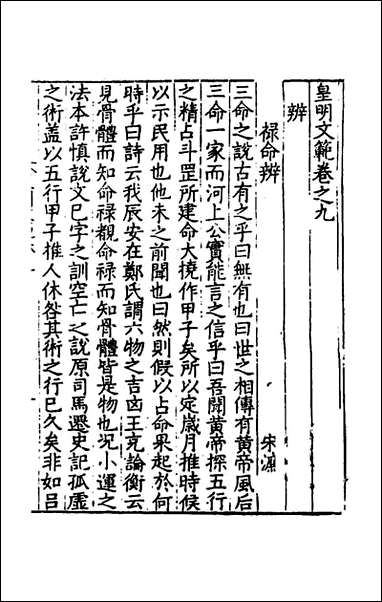 皇明文範卷之九
辨
祿命辨 宋濂
三命之說古有之乎曰無有也曰世之相傳有黃帝風后
三命一家而河上公實能言之信乎曰吾聞黃帝探五行
之精占斗罡所建命大撓作甲子矣所以定歲月推時候
以示民用也他未之前聞也曰然則假以占命果起於何
時乎曰詩云我辰安在鄭氏謂六物之吉凶王充論衡云
見骨體而知命祿覩命祿而知骨體皆是物也况小運之
法本許慎說文巳字之訓空亡之說原司馬遷史記孤虛
之術盖以五行甲子推人休咎其術之行已久矣非如吕